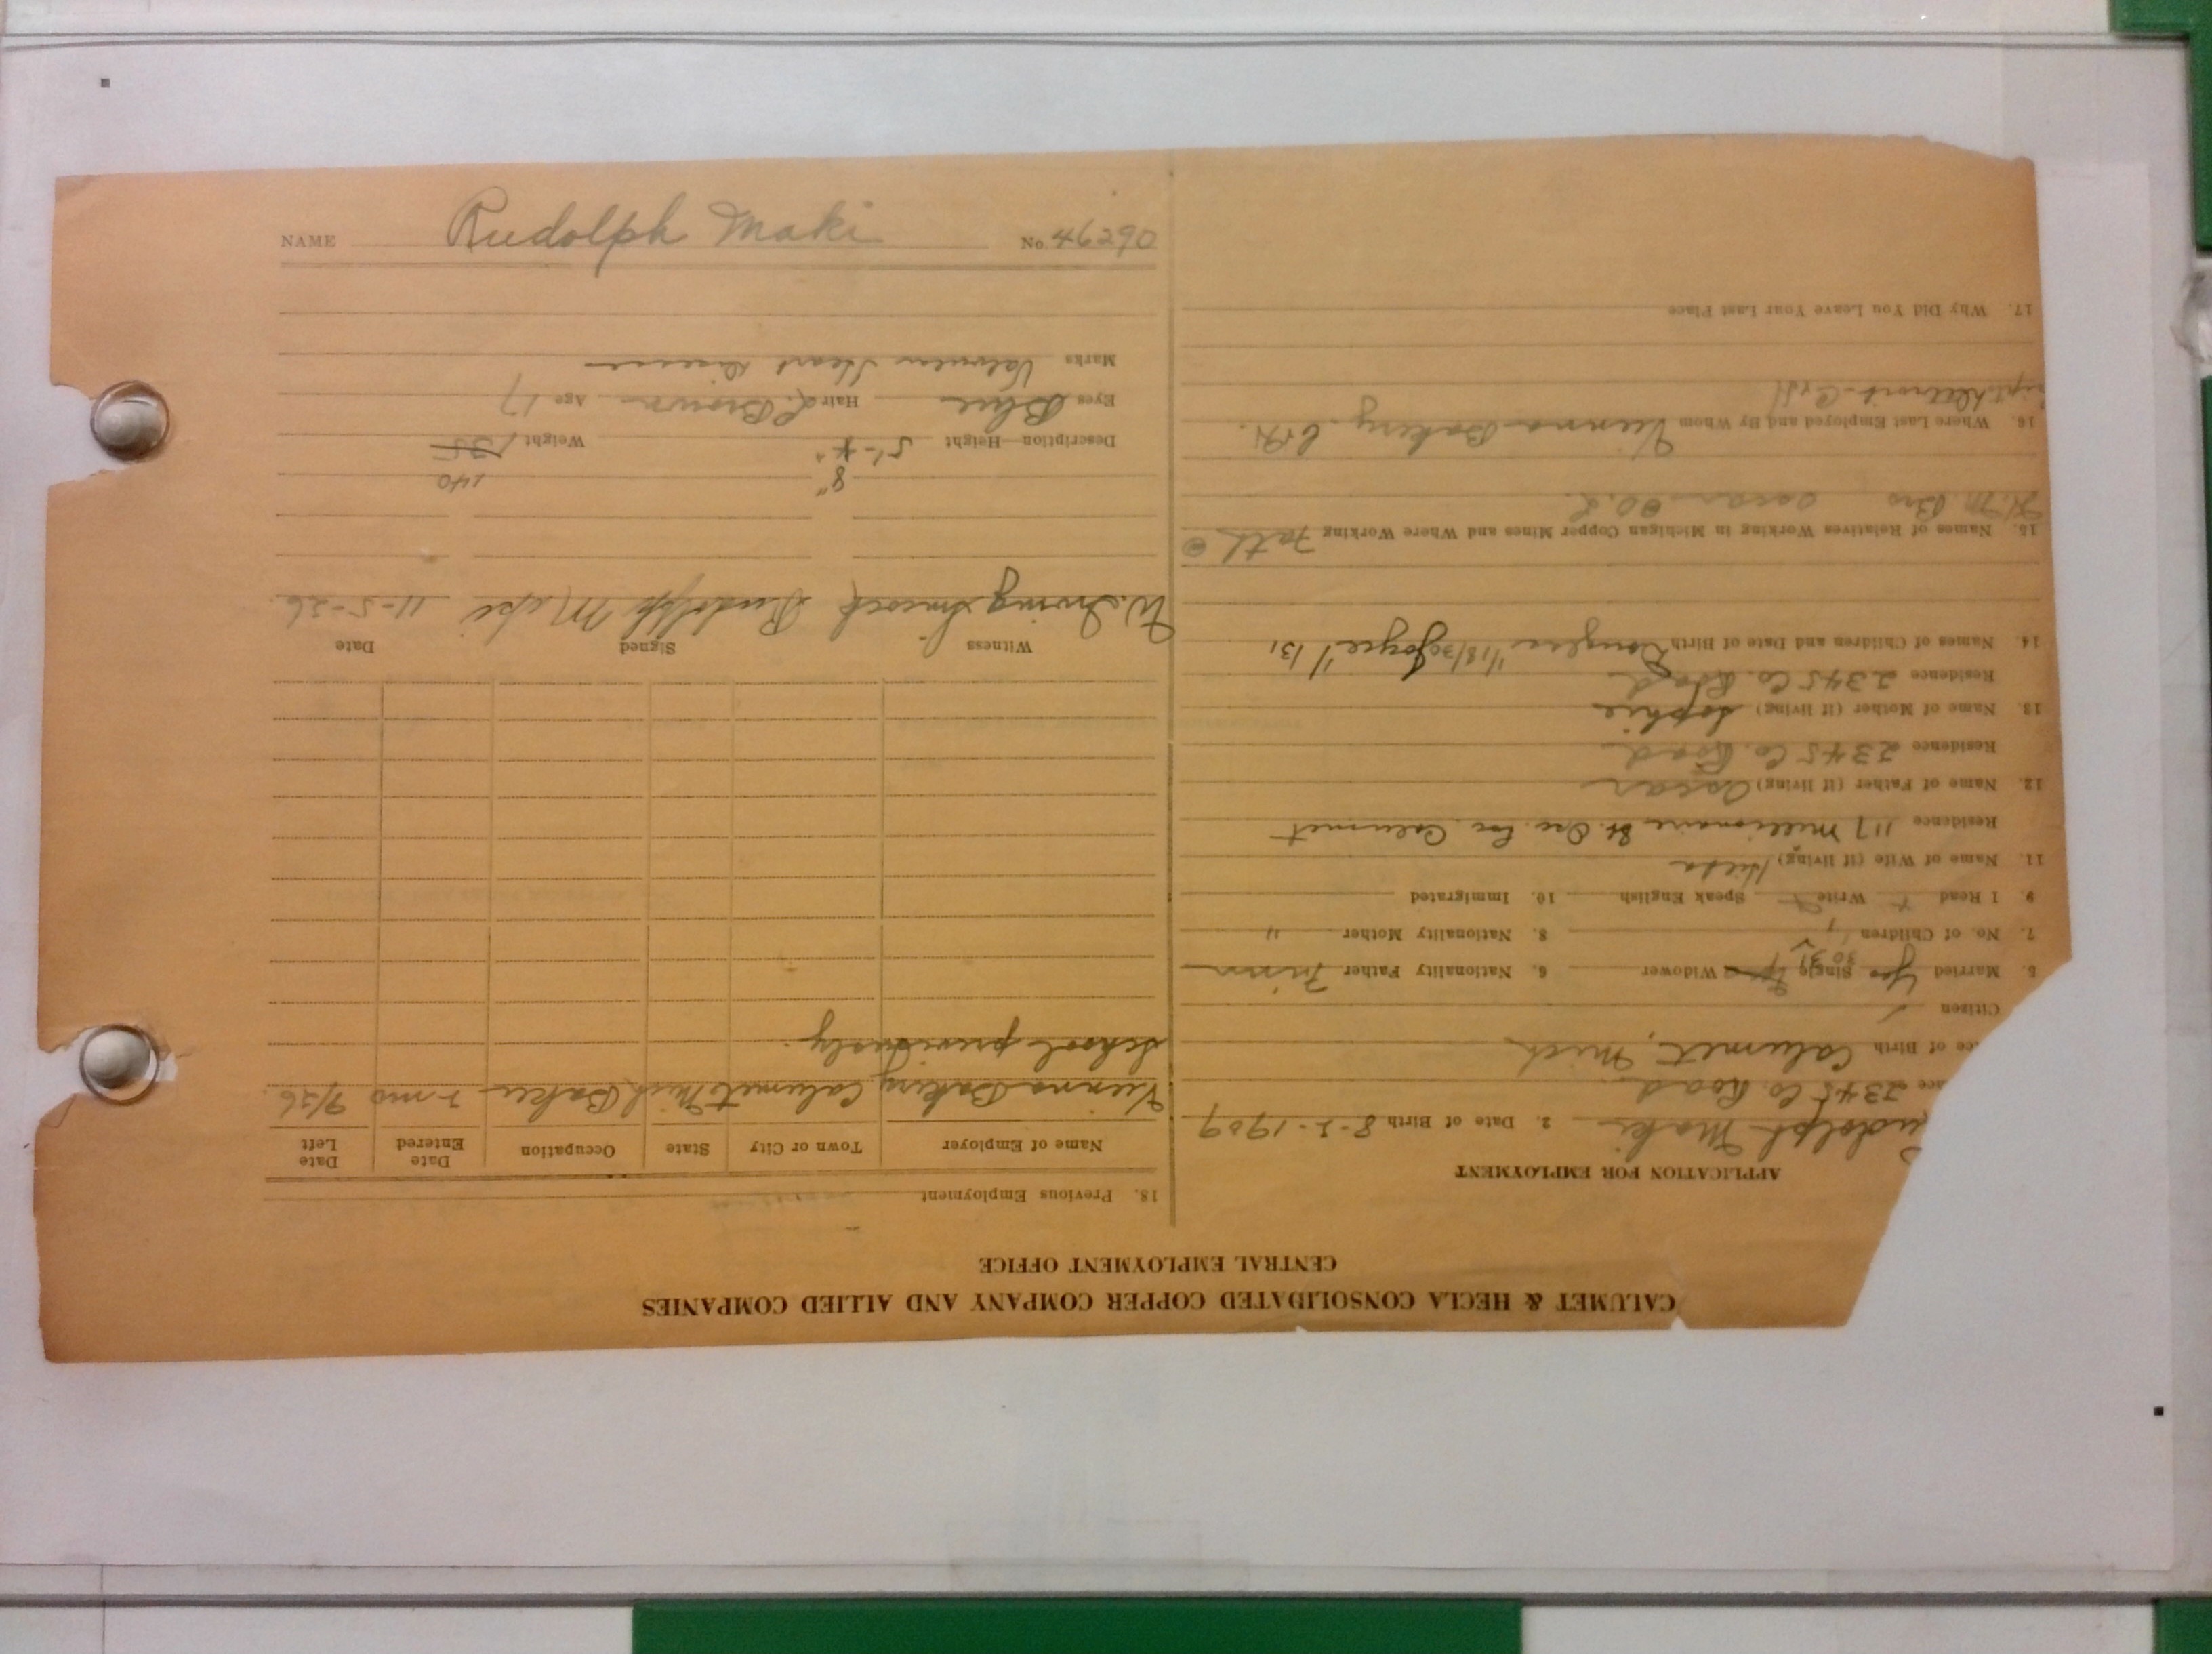 CALUMET & HECLA CONSOLIDATED COPPER COMPANY AND ALLIED COMPANIES
CENTRAL EMPLOYMENT OFFICE
APPLICATION FOR EMPLOYMENT
udolph Maki 2. Date of Birth 8-2-1909
ace 2345 Co. Road
ce of Birth Calumet, Mich
Citizen ✓
5. Married Yes Single Widower 6. Nationality Father Finn
7. No. of Children 1 8. Nationality Mother "
9. I Read + Write + Speak English 10. Immigrated
11. Name of Wife (if living)
Residence 117 Millionaire St. Loc. Calumet
12. Name of Father (if living) Oscar
Residence 2345 Co. Road
13. Name of Mother (if living) Sophie
Residence 2345 Co. Road
14. Names of Children and Date of Birth Douglas 1/18/30 Joyce 1/31
15. Names of Relatives Working in Michigan Copper Mines and Where Working Fath
Bro Oscar
16. Where Last Employed and By Whom Vienna Bakery
17. Why Did You Leave Your Last Place
18. Previous Employment
Name of Employer Town or City State Occupation Date Entered Date Left
Vienna Bakery Calumet Mich Baker 2 mo 9/26
School previously.
Witness Signed Date
W. Irving Rudolph Maki 11-5-26
8" 140
Description—Height 5'-4" Weight 135
Eyes Blue Hair L. Brown Age 17
Marks Valvular Heart Disease
NAME Rudolph Maki No. 46290